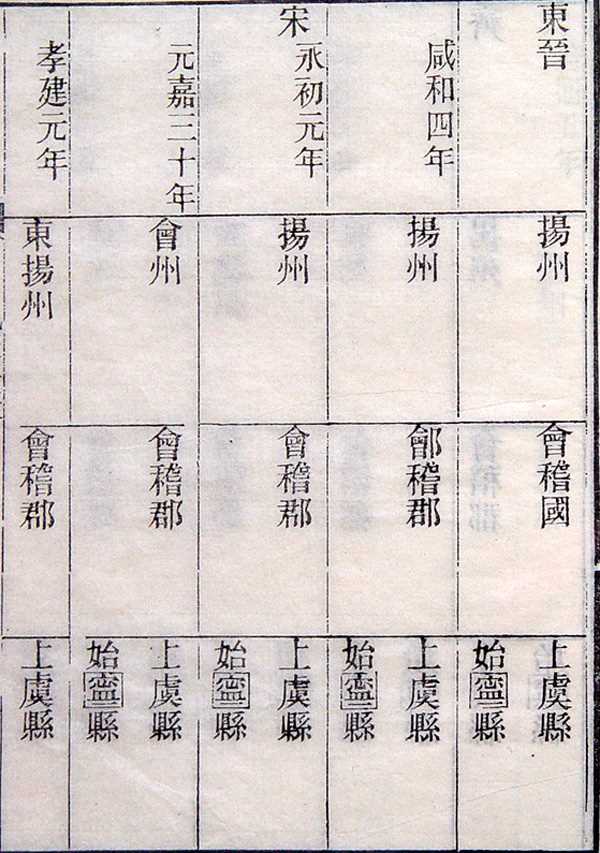 東晉
揚州
會稽國
上虞縣
始寍縣
咸和四年
揚州
鄶稽郡
上虞縣
始寍縣
宋
永初元年
揚州
會稽郡
上虞縣
始寍縣
元嘉三十年
會州
會稽郡
上虞縣
始寍縣
孝建元年
東揚州
會稽郡
上虞縣